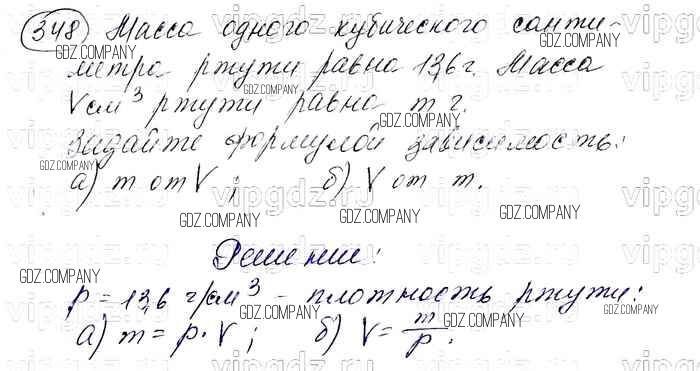 348) Масса одного кубического санти-
метра ртути равна 13,6 г. Масса
V см³ ртути равна m г.
Задайте формулой зависимость:
а) m от V; б) V от m.
Решение:
p = 13,6 г/см³ - плотность ртути:
а) m = p · V; б) V = m/p.
GDZ.COMPANY
vipgdz.ru